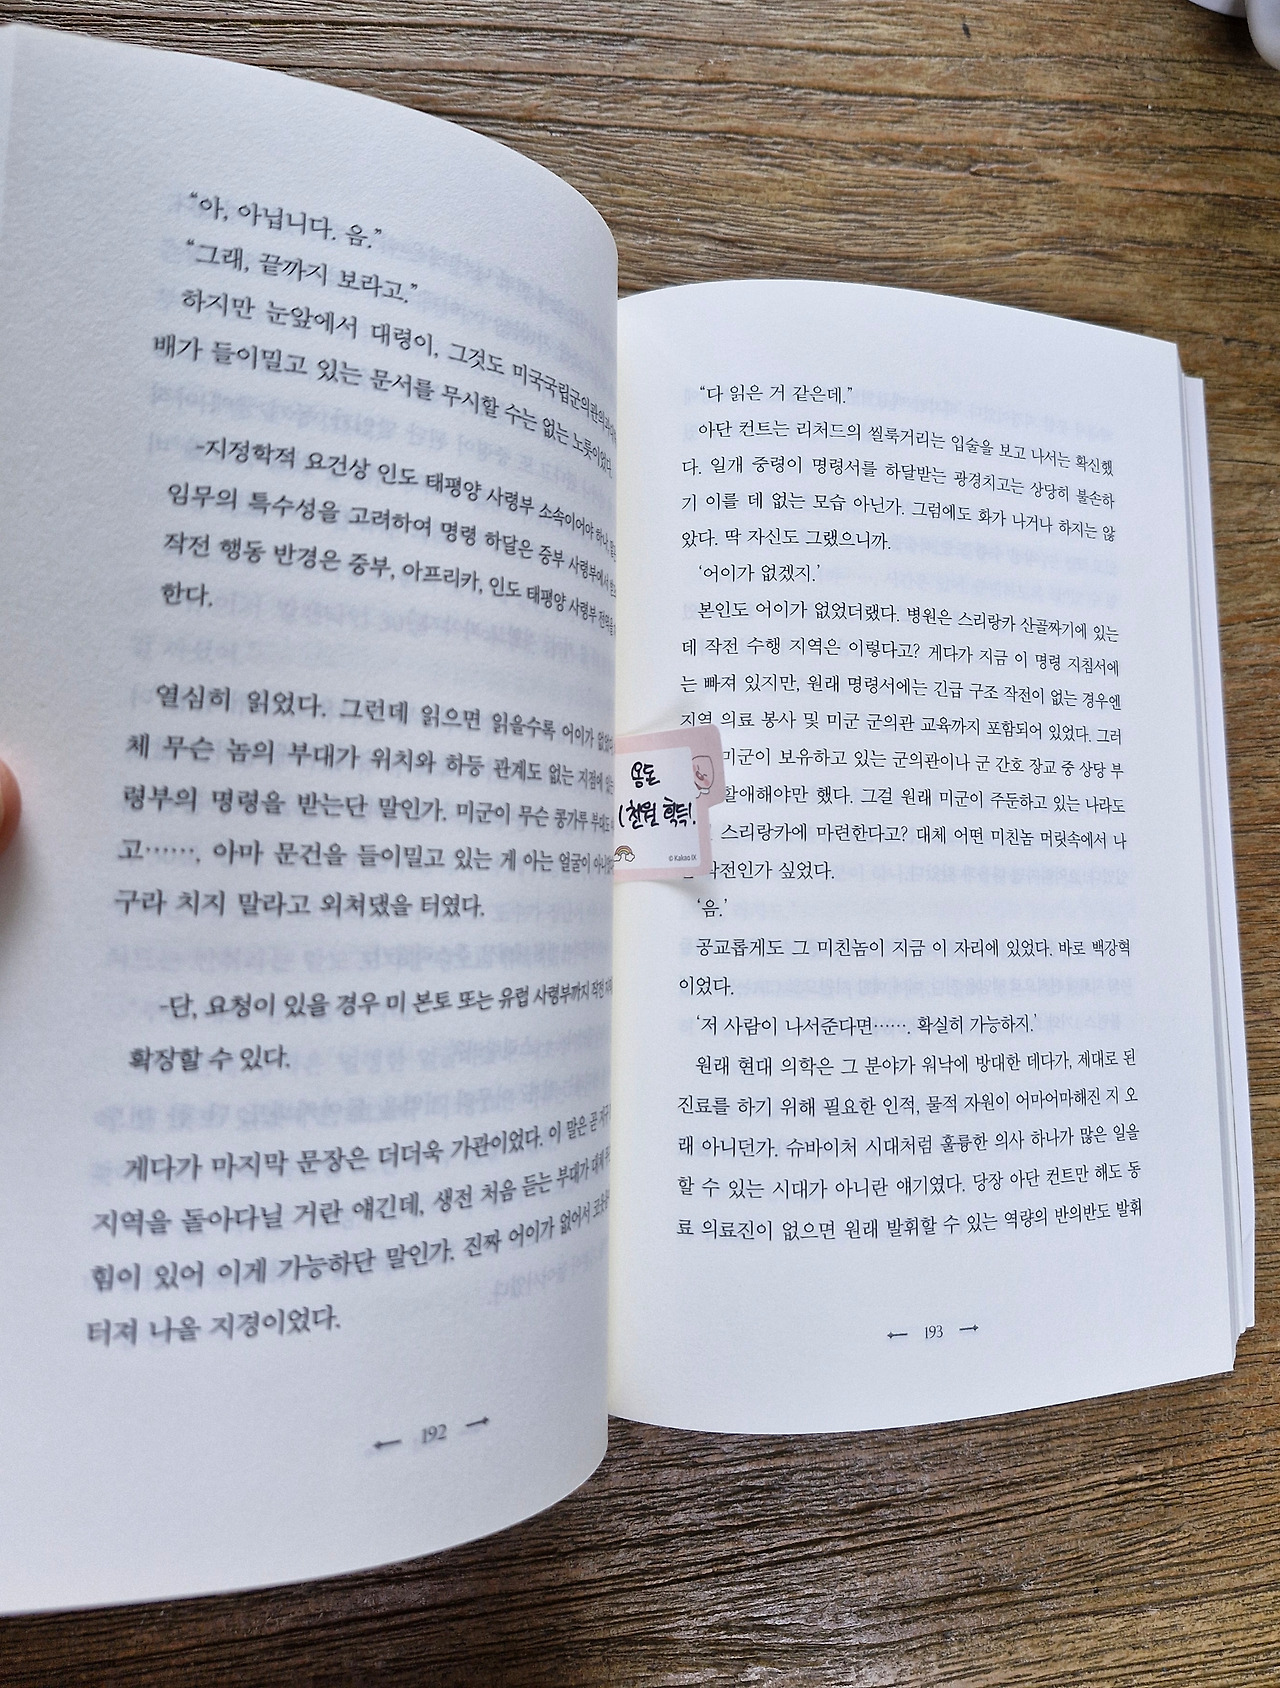 “아, 아닙니다. 음.”
“그래, 끝까지 보라고.”
하지만 눈앞에서 대령이, 그것도 미국국립군의관의과
배가 들이밀고 있는 문서를 무시할 수는 없는 노릇이었다.
-지정학적 요건상 인도 태평양 사령부 소속이어야 하나,
임무의 특수성을 고려하여 명령 하달은 중부 사령부에서
작전 행동 반경은 중부, 아프리카, 인도 태평양 사령부 전역을
한다.
열심히 읽었다. 그런데 읽으면 읽을수록 어이가 없었다.
체 무슨 놈의 부대가 위치와 하등 관계도 없는 지점에 있는
령부의 명령을 받는단 말인가. 미군이 무슨 콩가루 부대도
고……, 아마 문건을 들이밀고 있는 게 아는 얼굴이 아니었
구라 치지 말라고 외쳐댔을 터였다.
-단, 요청이 있을 경우 미 본토 또는 유럽 사령부까지 작전
확장할 수 있다.
게다가 마지막 문장은 더더욱 가관이었다. 이 말은 곧 지구
지역을 돌아다닐 거란 얘긴데, 생전 처음 듣는 부대가 대체
힘이 있어 이게 가능하단 말인가. 진짜 어이가 없어서
터져 나올 지경이었다.
192
“다 읽은 거 같은데.”
아단 컨트는 리처드의 씰룩거리는 입술을 보고 나서는 확신했
다. 일개 중령이 명령서를 하달받는 광경치고는 상당히 불손하
기 이를 데 없는 모습 아닌가. 그럼에도 화가 나거나 하지는 않
았다. 딱 자신도 그랬으니까.
‘어이가 없겠지.’
본인도 어이가 없었더랬다. 병원은 스리랑카 산골짜기에 있는
데 작전 수행 지역은 이렇다고? 게다가 지금 이 명령 지침서에
는 빠져 있지만, 원래 명령서에는 긴급 구조 작전이 없는 경우엔
지역 의료 봉사 및 미군 군의관 교육까지 포함되어 있었다. 그러
미군이 보유하고 있는 군의관이나 군 간호 장교 중 상당 부
할애해야만 했다. 그걸 원래 미군이 주둔하고 있는 나라도
스리랑카에 마련한다고? 대체 어떤 미친놈 머릿속에서 나
작전인가 싶었다.
‘음.’
공교롭게도 그 미친놈이 지금 이 자리에 있었다. 바로 백강혁
이었다.
‘저 사람이 나서준다면……. 확실히 가능하지.’
원래 현대 의학은 그 분야가 워낙에 방대한 데다가, 제대로 된
진료를 하기 위해 필요한 인적, 물적 자원이 어마어마해진 지 오
래 아니던가. 슈바이처 시대처럼 훌륭한 의사 하나가 많은 일을
할 수 있는 시대가 아니란 얘기였다. 당장 아단 컨트만 해도 동
료 의료진이 없으면 원래 발휘할 수 있는 역량의 반의반도 발휘
193
용돈
천원 획득!
© Kakao IX